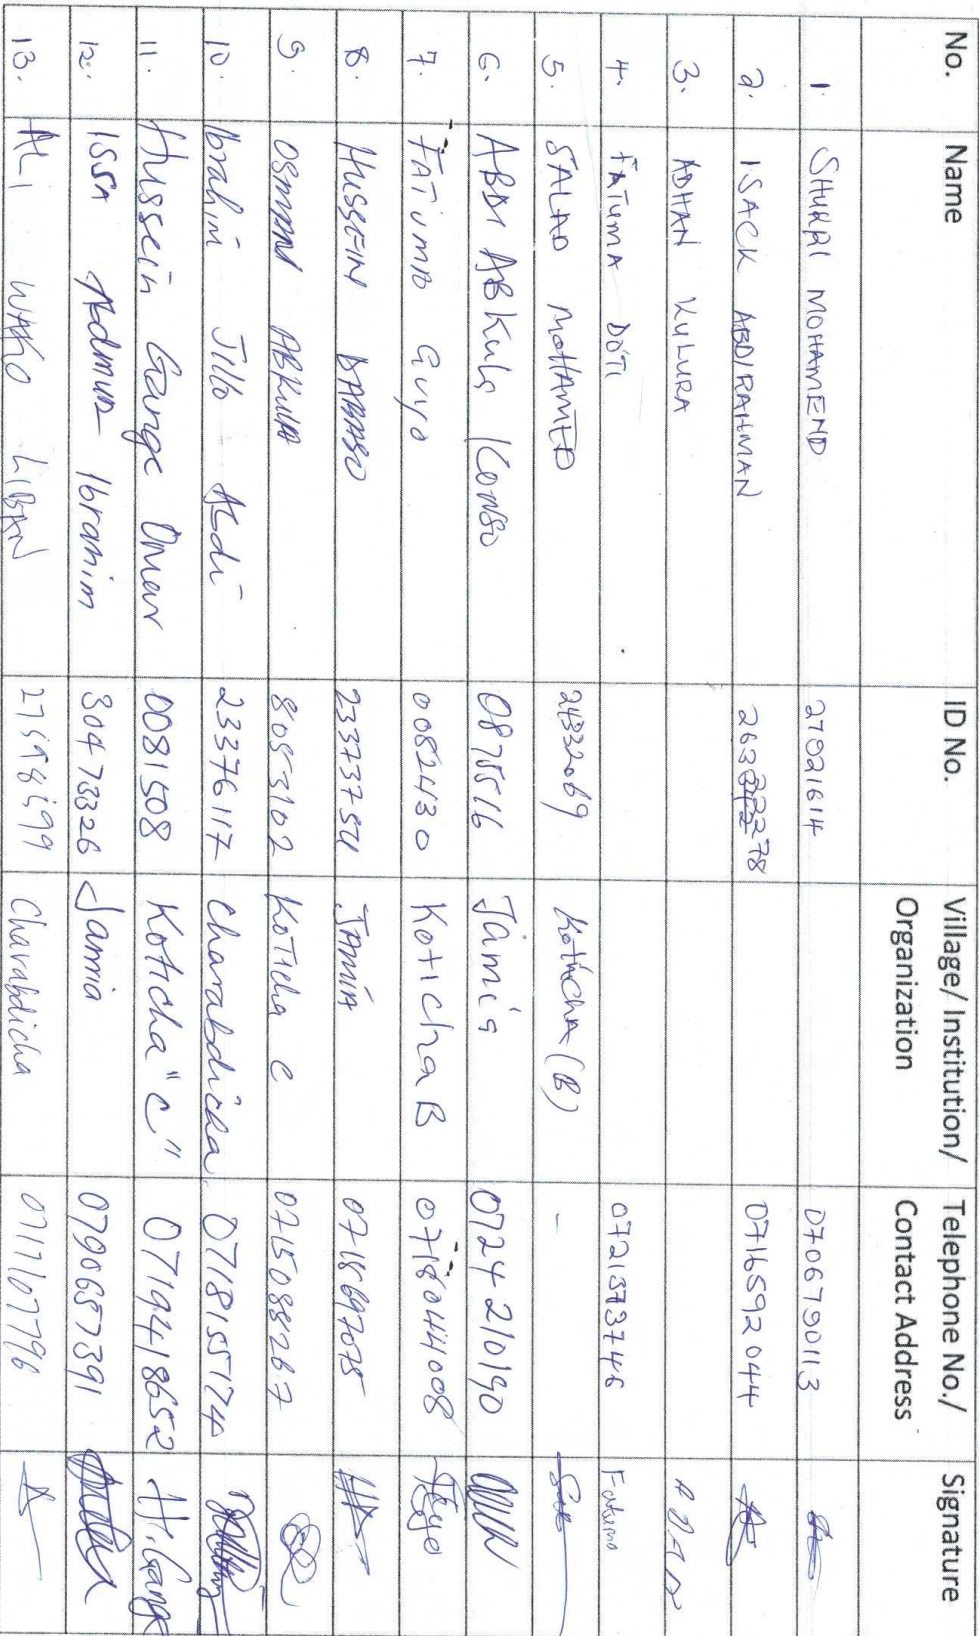 No. Name ID No. Village/ Institution/ Organization Telephone No./ Contact Address Signature
1. SHUKRI MOHAMEND 27021614 0706790113
2. ISACK ABDIRAHMAN 0716592044
3. ADHAN KULURA
4. FATUMA DOTI 0721373746 Fatuma
5. SALAD MOHAMED 24332069 Koticha (B) -
6. ABDI ABKULA KONSO Jamia 0724210190
7. FATUMA Guyo 0052430 Koticha B 0718044008
8. HUSSEIN DABASO 23373754 JAMIA 0718697075
9. OSMAN ABKULA 8053102 Koticha C 0715088267
10. Ibrahim Jillo Abdi 23376117 Charabdicha 0718155174
11. Hussein Gange Omar 0081508 Koticha "C" 0719418652 H. Gange
12. ISSA Ibrahim 30473326 Jamia 0790657391
13. ALI WAKO LIBAN Charabdicha 0711107796